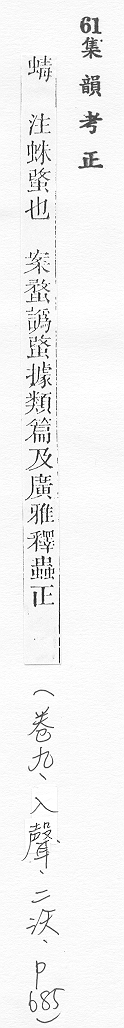 61集韻考正
蜻　注蛛蝥也　案蝥譌蟊據類篇及廣雅釋蟲正
(卷九、入聲、二沃、p685)